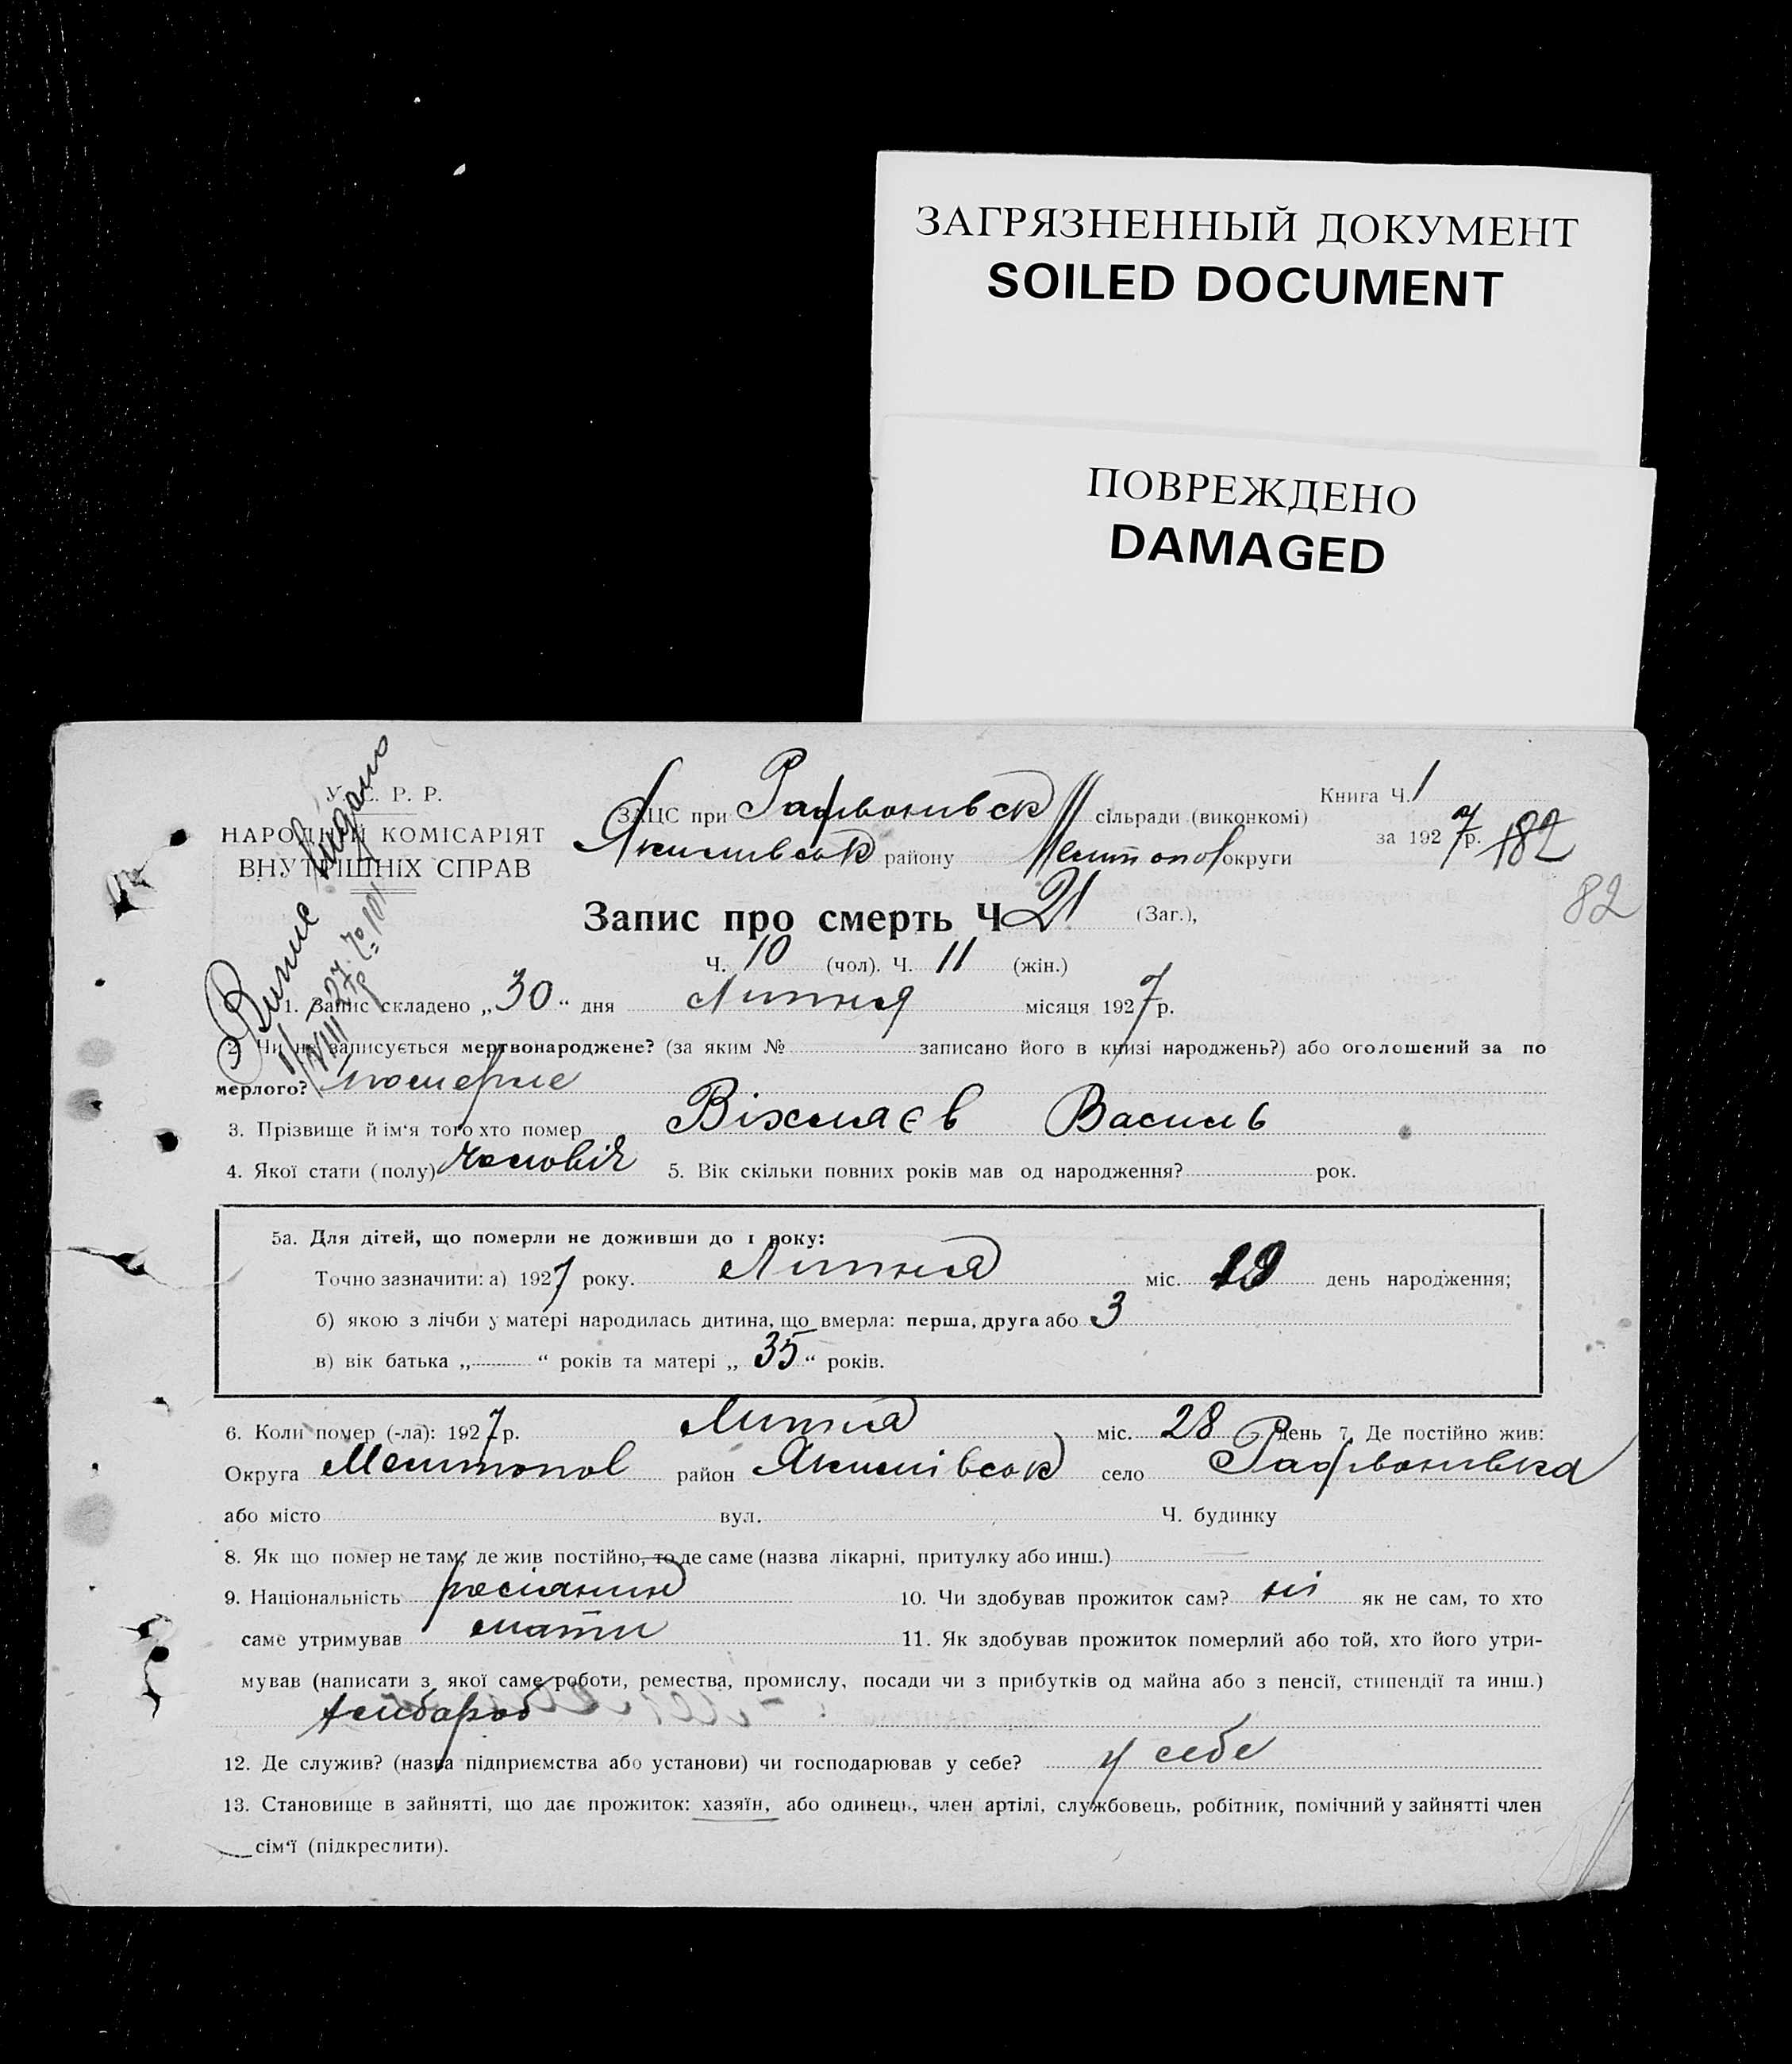 ЗАГРЯЗНЕННЫЙ ДОКУМЕНТ
SOILED DOCUMENT
ПОВРЕЖДЕНО
DAMAGED
У. С. Р. Р.
НАРОДНИЙ КОМІСАРІЯТ
ВНУТРІШНІХ СПРАВ
ЗАЦС при сільради (виконкомі)
Якимівськ району Мелитопол округи
Книга Ч. 1
за 1927 р. 182
82
Запис про смерть Ч 21 (Заг.),
Ч. 10 (чол). Ч. 11 (жін.)
1. Запис складено „30“ дня Липня місяця 1927 р.
2. Чи не записується мертвонароджене? (за яким № записано його в книзі народжень?) або оголошений за по
мерлого? померле
3. Прізвище й ім'я того хто помер Віхляєв Василь
4. Якої стати (полу) чоловіч 5. Вік скільки повних років мав од народження? рок.
5а. Для дітей, що померли не доживши до 1 року:
Точно зазначити: а) 1927 року. Липня міс. 19 день народження;
б) якою з лічби у матері народилась дитина, що вмерла: перша, друга або 3
в) вік батька „ “ років та матері „35“ років.
6. Коли помер (-ла): 1927 р. Липня міс. 28 день 7. Де постійно жив:
Округа Мелитопол район Якимівськ село
або місто вул. Ч. будинку
8. Як що помер не там, де жив постійно, то де саме (назва лікарні, притулку або инш.)
9. Національність росіянин 10. Чи здобував прожиток сам? ні як не сам, то хто
саме утримував мати 11. Як здобував прожиток померлий або той, хто його утри-
мував (написати з якої саме роботи, ремества, промислу, посади чи з прибутків од майна або з пенсії, стипендії та инш.)
хлібороб
12. Де служив? (назва підприємства або установи) чи господарював у себе? у себе
13. Становище в зайнятті, що дає прожиток: хазяїн, або одинець, член артілі, службовець, робітник, помічний у зайнятті член
сім'ї (підкреслити).